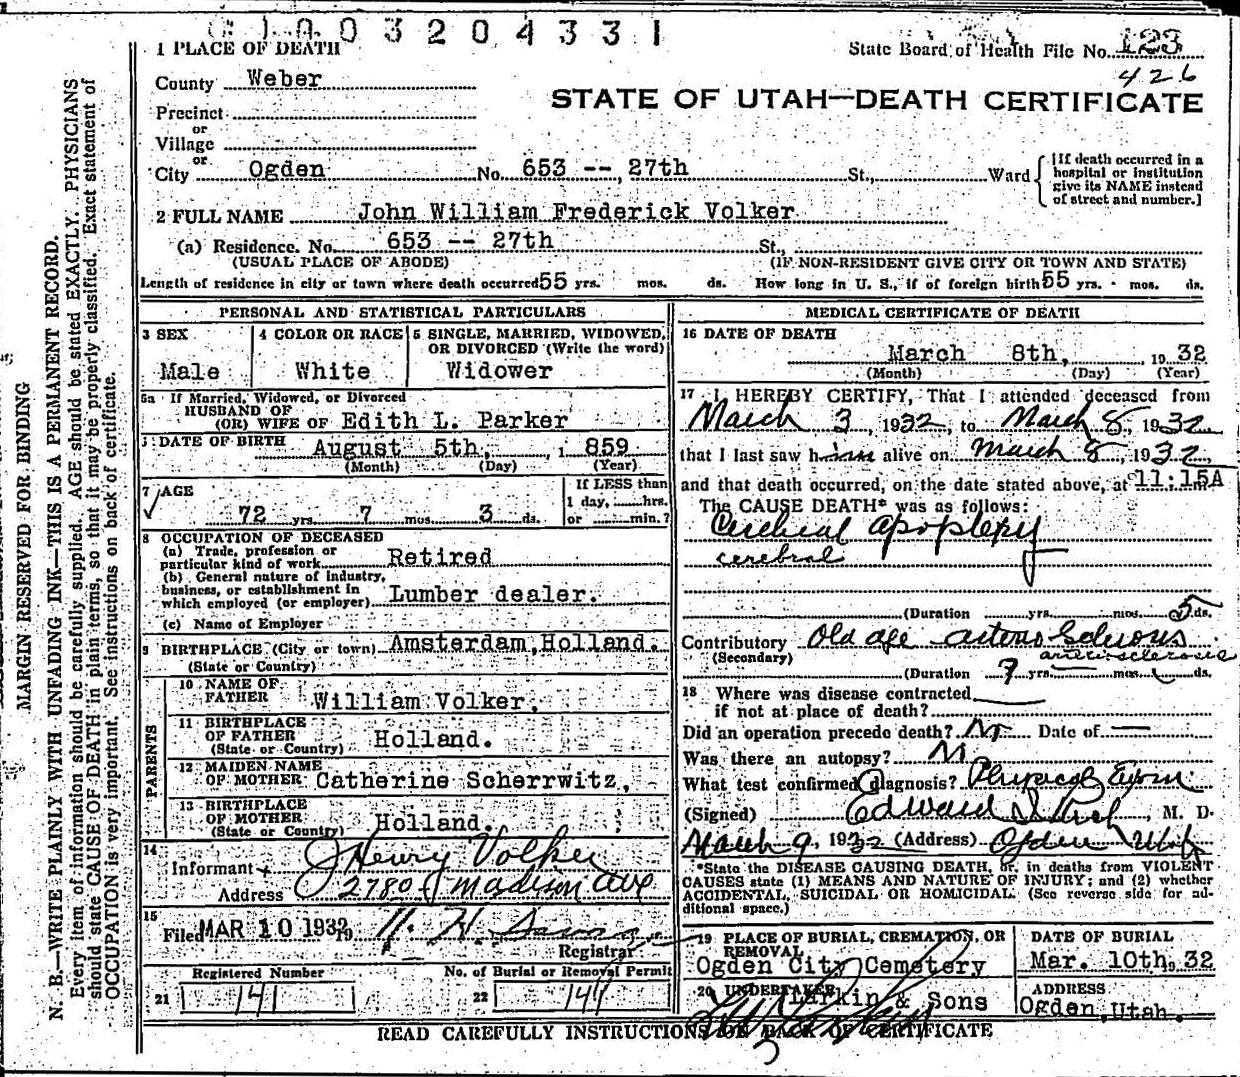 003204331
1 PLACE OF DEATH
State Board of Health File No. 123
426
County Weber
STATE OF UTAH—DEATH CERTIFICATE
Precinct
or
Village
or
City Ogden No. 653 -- 27th St., Ward
[If death occurred in a hospital or institution give its NAME instead of street and number.]
2 FULL NAME John William Frederick Volker
(a) Residence. No. 653 -- 27th St.,
(USUAL PLACE OF ABODE) (IF NON-RESIDENT GIVE CITY OR TOWN AND STATE)
Length of residence in city or town where death occurred 55 yrs. mos. ds. How long in U. S., if of foreign birth 55 yrs. mos. ds.
PERSONAL AND STATISTICAL PARTICULARS
3 SEX
Male
4 COLOR OR RACE
White
5 SINGLE, MARRIED, WIDOWED,
OR DIVORCED (Write the word)
Widower
5a If Married, Widowed, or Divorced
HUSBAND OF
(OR) WIFE OF Edith L. Parker
DATE OF BIRTH August 5th, 1 859
(Month) (Day) (Year)
7 AGE
72 yrs. 7 mos. 3 ds.
If LESS than
1 day, hrs.
or min.?
8 OCCUPATION OF DECEASED
(a) Trade, profession or
particular kind of work Retired
(b) General nature of Industry,
business, or establishment in
which employed (or employer) Lumber dealer.
(c) Name of Employer
9 BIRTHPLACE (City or town) Amsterdam, Holland.
(State or Country)
PARENTS
10 NAME OF
FATHER William Volker,
11 BIRTHPLACE
OF FATHER Holland.
(State or Country)
12 MAIDEN NAME
OF MOTHER Catherine Scherrwitz,
13 BIRTHPLACE
OF MOTHER Holland.
(State or Country)
14
Informant J Henry Volker
Address 2780 Madison Ave
15
Filed MAR 10 1932 19
Registrar
Registered Number
21 141
No. of Burial or Removal Permit
22 144
MEDICAL CERTIFICATE OF DEATH
16 DATE OF DEATH
March 8th, 1932
(Month) (Day) (Year)
17 I HEREBY CERTIFY, That I attended deceased from
March 3, 1932, to March 8, 1932
that I last saw him alive on March 8, 1932,
and that death occurred, on the date stated above, at 11:15A
The CAUSE DEATH* was as follows:
Cerebral apoplexy
cerebral
(Duration yrs. mos. 5 ds.
Contributory Old age arterio Sclerosis
(Secondary) arteriosclerosis
(Duration 7 yrs. mos. ds.
18 Where was disease contracted
if not at place of death?
Did an operation precede death? No Date of —
Was there an autopsy? No
What test confirmed diagnosis? Physical Exam.
(Signed) Edward , M. D.
March 9, 1932 (Address) Ogden Utah
*State the DISEASE CAUSING DEATH, or, in deaths from VIOLENT
CAUSES state (1) MEANS AND NATURE OF INJURY; and (2) whether
ACCIDENTAL, SUICIDAL OR HOMICIDAL. (See reverse side for ad-
ditional space.)
19 PLACE OF BURIAL, CREMATION, OR
REMOVAL
Ogden City Cemetery
DATE OF BURIAL
Mar. 10th, 32
20 UNDERTAKER
Larkin & Sons
ADDRESS
Ogden, Utah.
READ CAREFULLY INSTRUCTIONS ON BACK OF CERTIFICATE
MARGIN RESERVED FOR BINDING
N. B.—WRITE PLAINLY WITH UNFADING INK—THIS IS A PERMANENT RECORD.
Every item of information should be carefully supplied. AGE should be stated EXACTLY. PHYSICIANS
should state CAUSE OF DEATH in plain terms, so that it may be properly classified. Exact statement of
OCCUPATION is very important. See instructions on back of certificate.